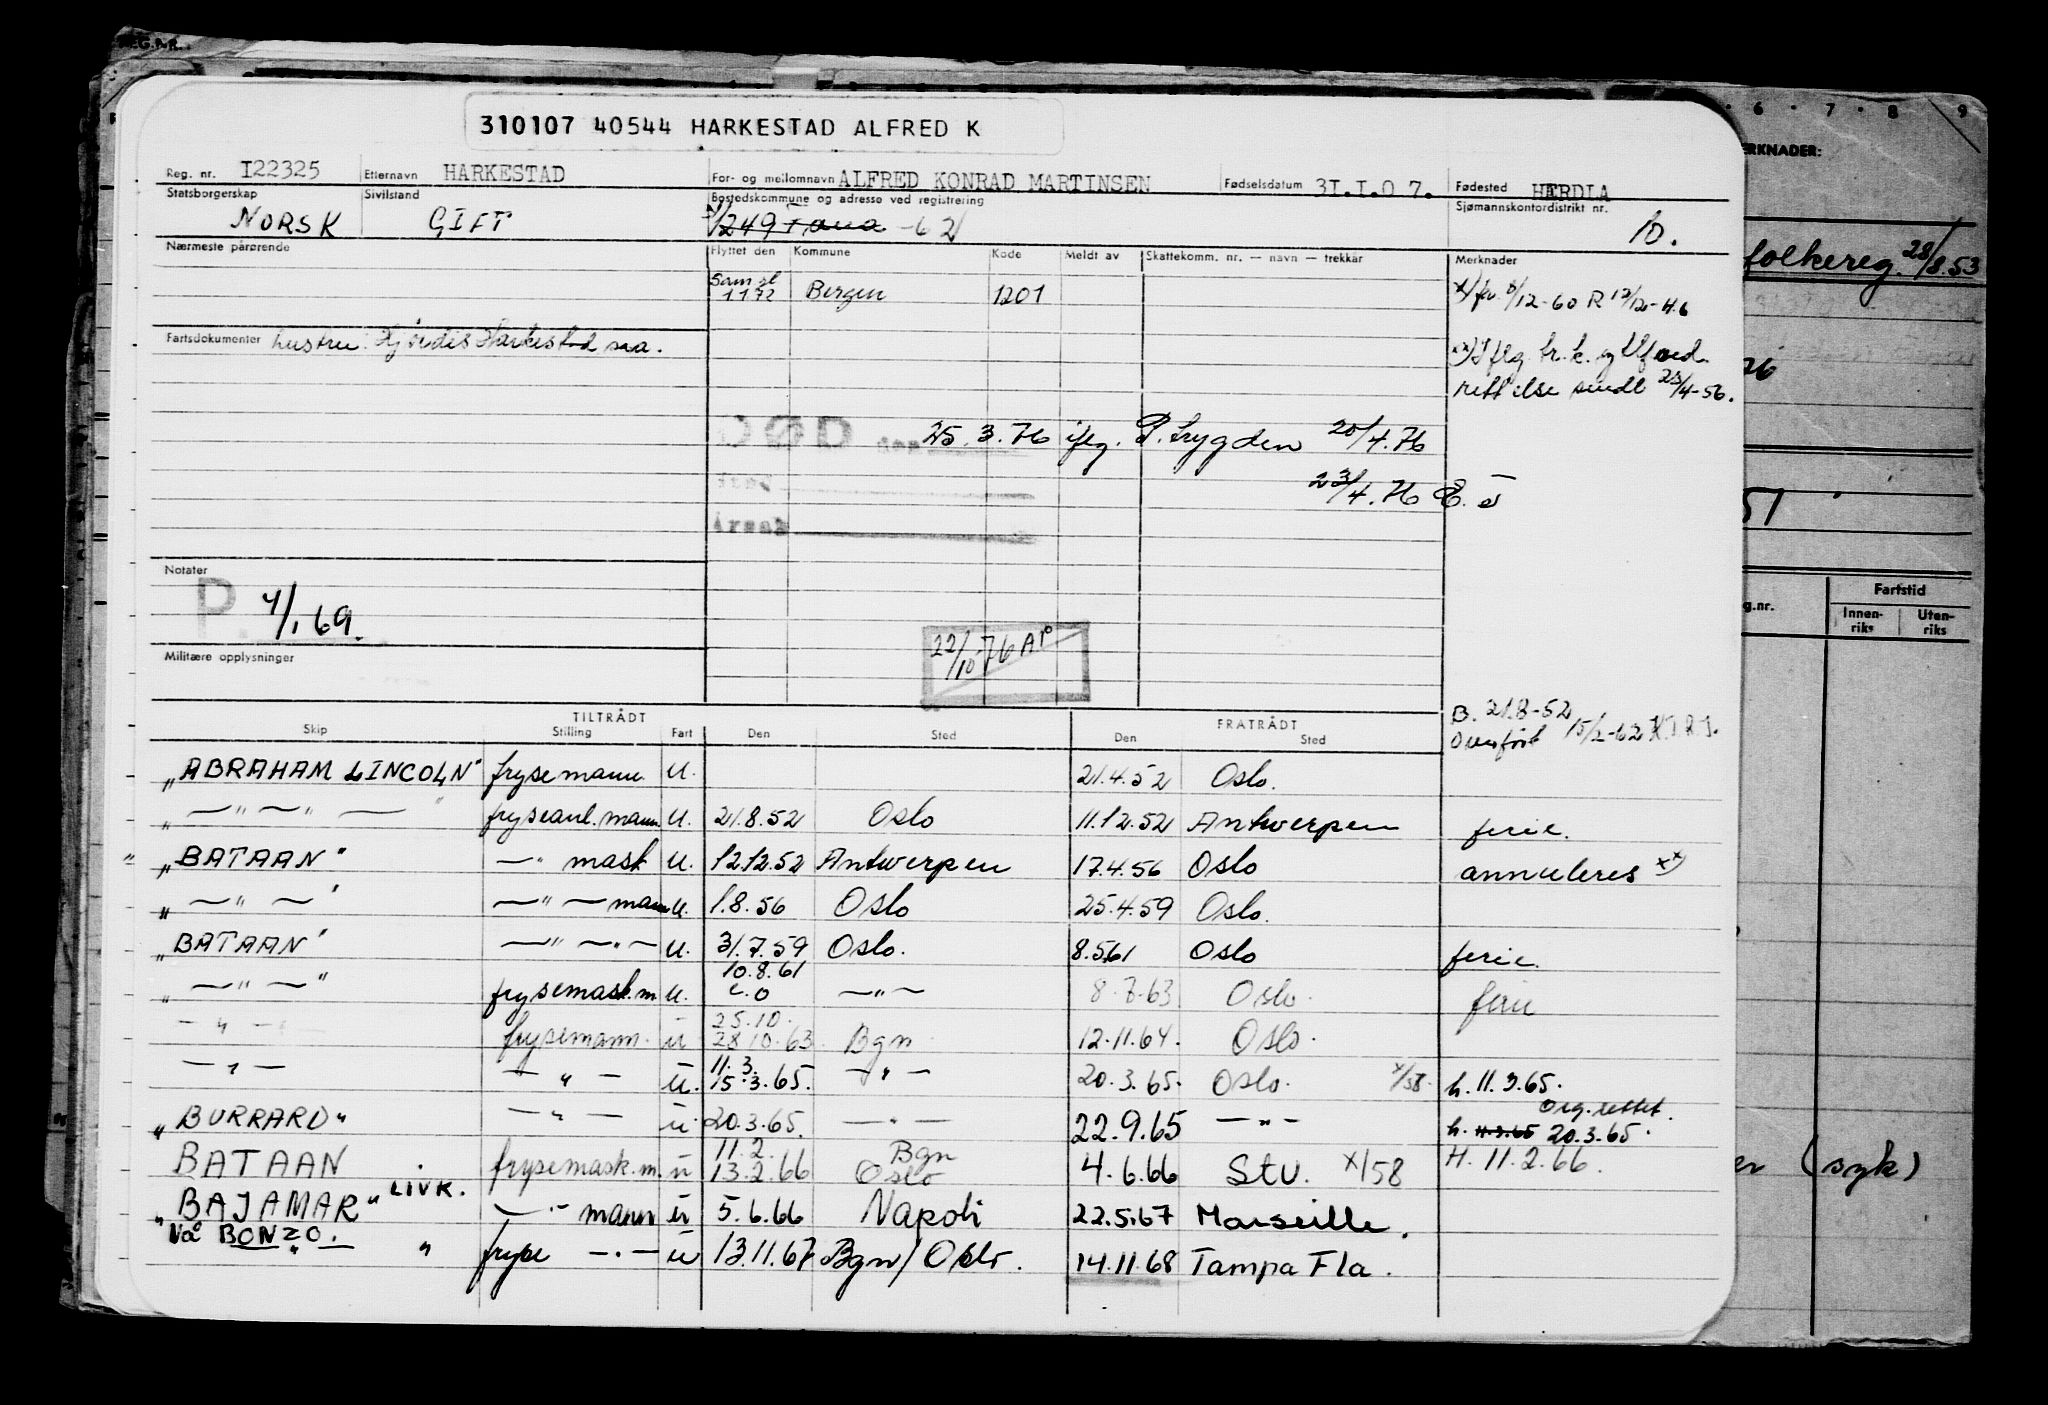 REG.NR.
310107 40544 HARKESTAD ALFRED K
Reg. nr. I22325 Etternavn HARKESTAD For- og mellomnavn ALFRED KONRAD MARTINSEN Fødselsdatum 3I.I.0 7. Fødested HERDLA
Statsborgerskap NORSK Sivilstand GIFT Bostedskommune og adresse ved registrering 1249 -62 Sjømannskontordistrikt nr. 10.
Nærmeste pårørende Flyttet den Kommune Kode Meldt av Skattekomm. nr. — navn — trekkår Merknader
1172 Bergen 1201
12-60 R 12/12-46
Fartsdokumenter hustru: Hjørdis Harkestad sea.
rettelse sendt 23/4-56.
DØD den 25.3.76 iflg. P. trygden 20/4.76
23/4.76
Årsak
Notater
P. 4/1 69.
22/10 76
Militære opplysninger
B. 21.8-52
Overført 15/2-62
TILTRÅDT FRATRÅDT
Skip Stilling Fart Den Sted Den Sted
"ABRAHAM LINCOLN" frysemann U. 21.4.52 Oslo.
" — " — " — " fryseanl. mann U. 21.8.52 Oslo 11.12.52 Antwerpen ferie.
"BATAAN" — " mask U. 12.12.52 Antwerpen 17.4.56 Oslo annuleres xx)
" — " — " — " — mann U. 1.8.56 Oslo 25.4.59 Oslo.
"BATAAN" — " — " — U. 31.7.59 Oslo. 8.5.61 Oslo ferie.
" — " — " frysemask.m U. 10.8.61 — " — 8.7.63 Oslo. ferie
— " — frysemann. u 25.10. 28 10.63 Bgn 12.11.64. Oslo.
— " — — " — u. 11.3. 15.3.65. — " — 20.3.65. Oslo. x/58. h. 11.3.65.
Org. rettet.
"BURRARD" — " — u. 20.3.65. — " — 22.9.65 — " — h. 11.3.65 20.3.65.
BATAAN frysemask.m u 11.2. 13.2.66 Bgn Oslo 4.6.66 Stv. x/58 H. 11.2.66.
"BAJAMAR" LIVK. — " mann u 5.6.66 Napoli 22.5.67 Marseille.
Nå BONZO. " fryse — " — u 13.11.67 Bgn/Oslo. 14.11.68 Tampa Fla.
6 7 8 9
ERKNADER:
folkereg. 28/8.53
51
g.nr. Fartstid
Innen-riks Uten-riks
er (syk)